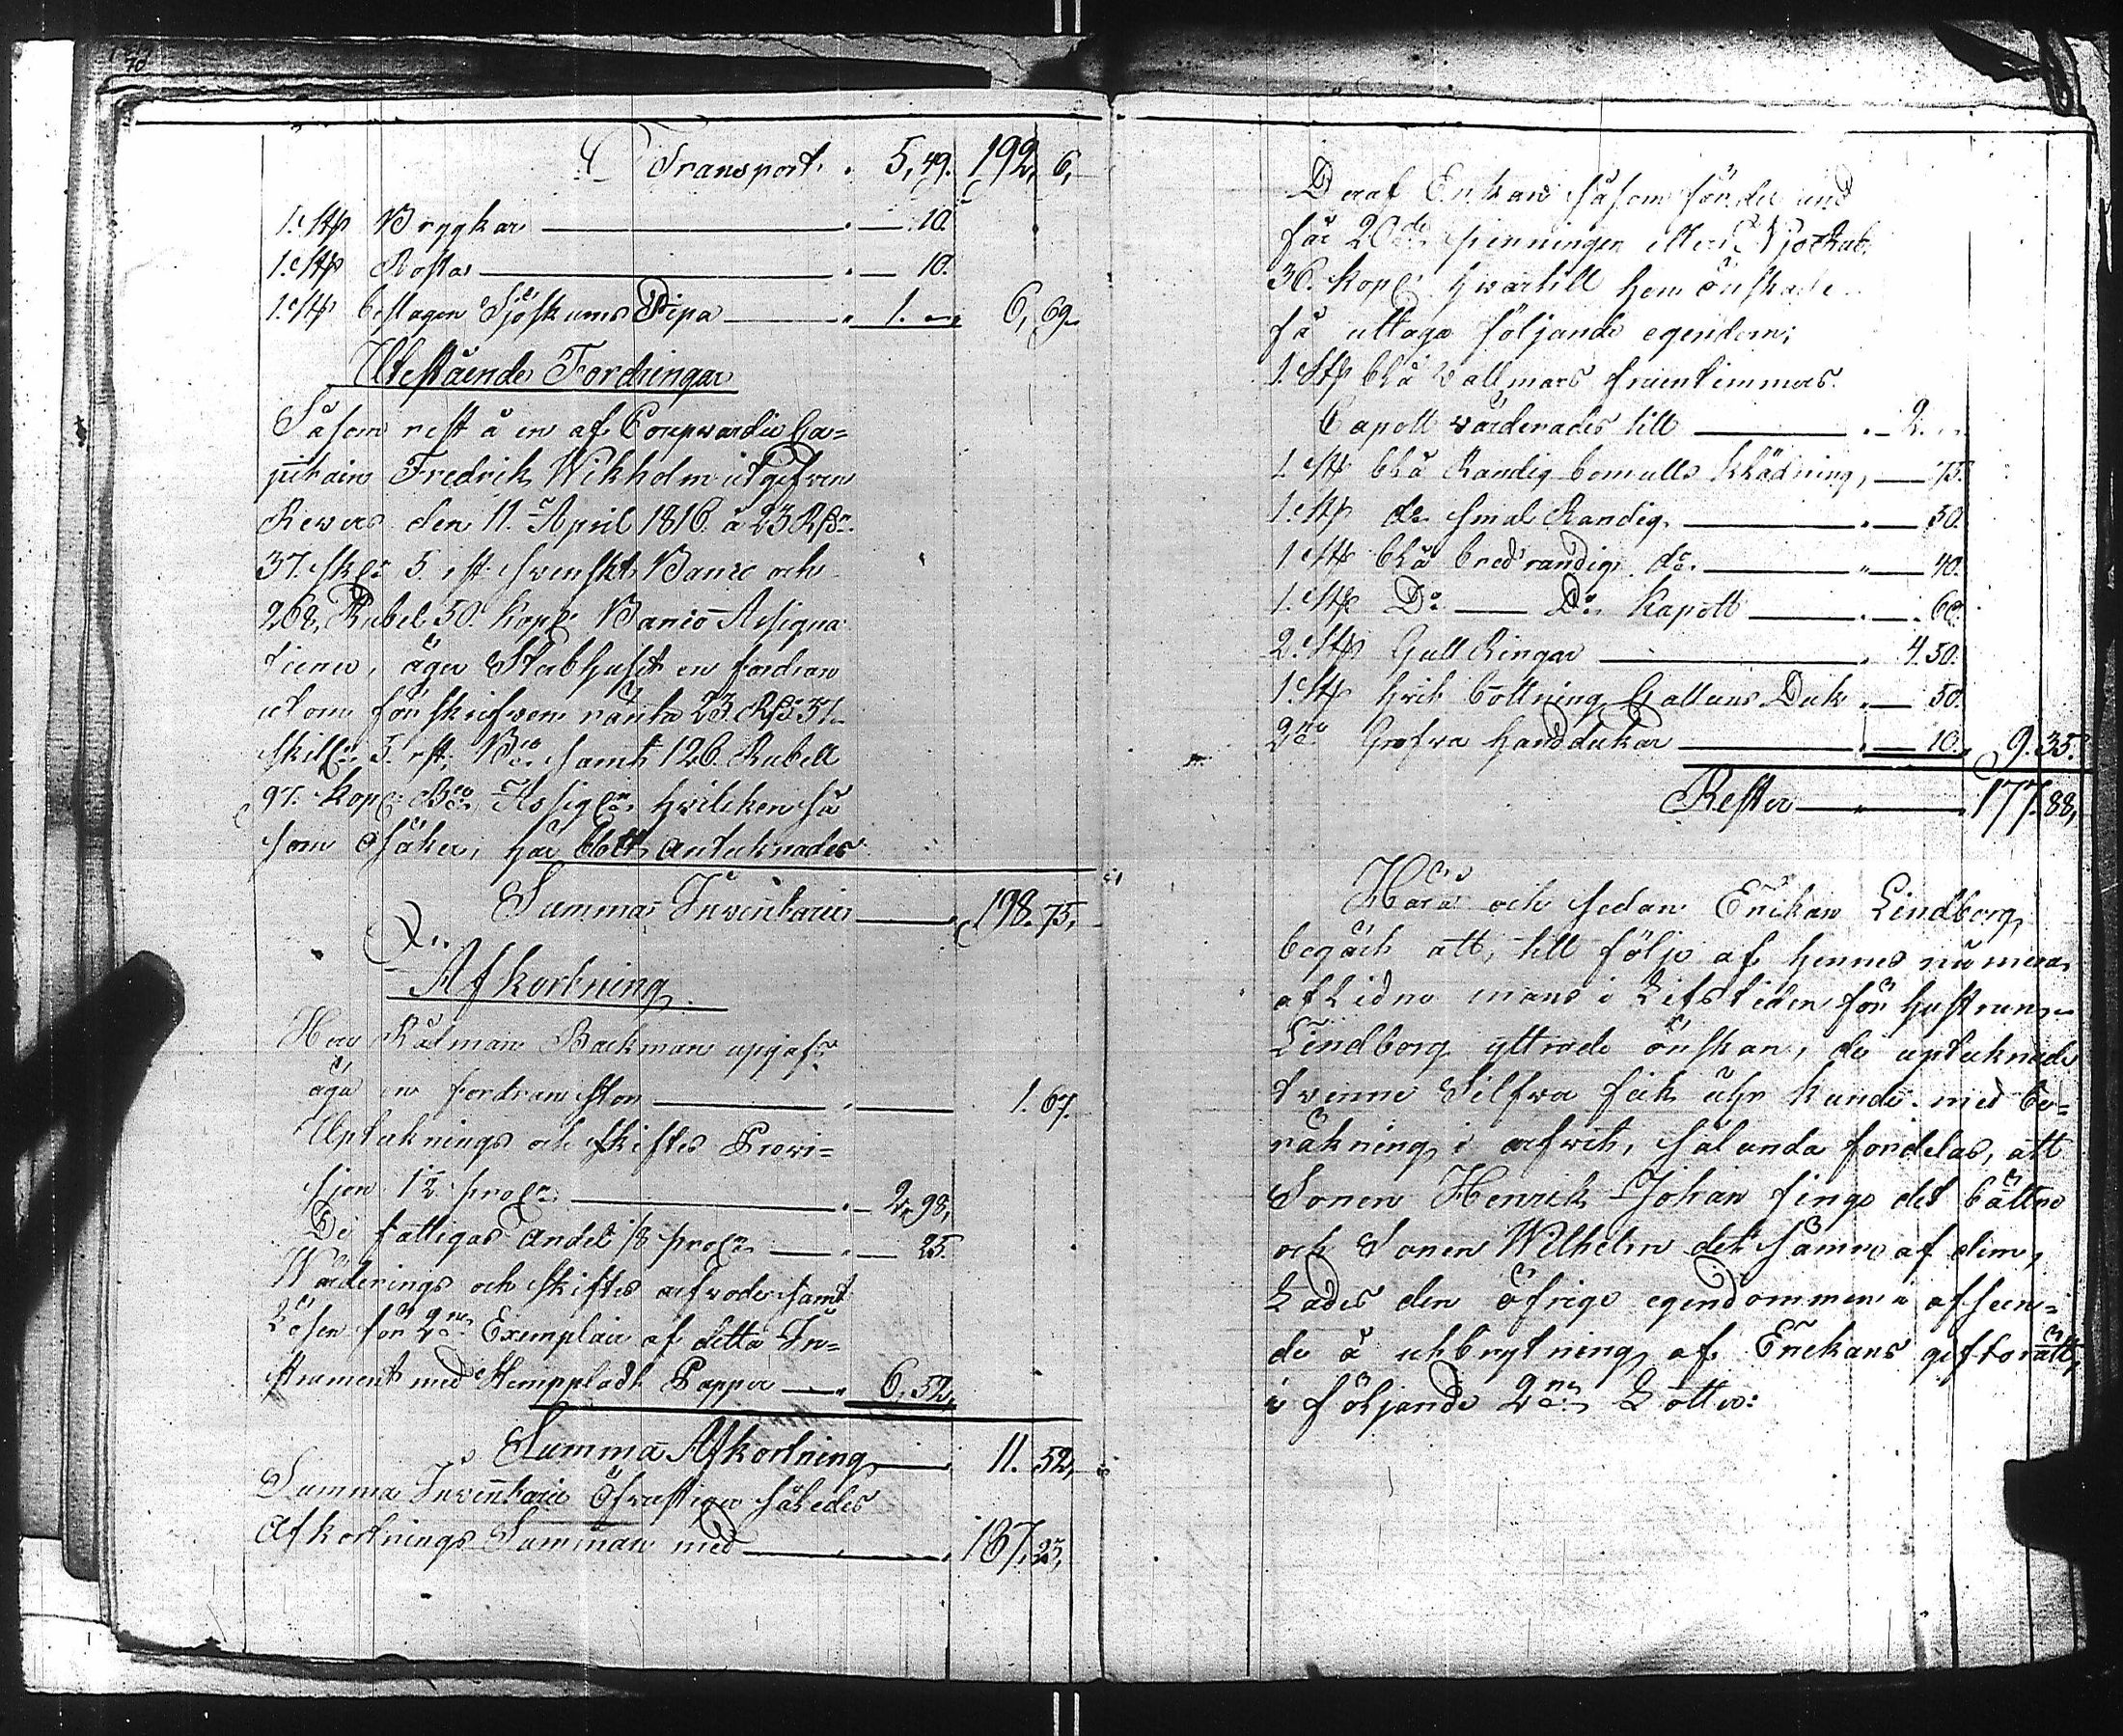 Transport . 5, 49. 192, 6,
1. st. Brygkar 10.
1. st. Rostar 10.
1. st. beslagen Sjöskums Pipa 1. – 6, 69.
Utestående Fordringar
Såsom rest å en af Coopvardie Ca=
pitainen Fredrik Wikholm utgifven
Revers den 11. April 1816. å 23 Rdr
37. sk. 5. rst. Svenskt Banco och
268, Rubel 50. kop. Banco Assigna
tioner, äger Sterbhuset en fordran
utom förskrifven ränta 23. Rd. 37.
skill. 5. rst. Bco samt 126. Rubell
97. Kop. Bco Assign. hvilcken så
som osäker, här blott anteknades
Summa Inventarii 198. 75,
Afkortning
Herr Rådman Backman uppgafs
äga en fordran stor 1. 67.
Upteknings och skiftes Provi=
sion 1½ proC. 2, 98,
De fattigas andel ⅛ proC. 25.
Wärderings och skiftes arfvode samt
Lösen för 2ne Exemplar af detta In=
strument med Stempladt Papper 6, 52,
Summa Afkortning 11. 52,
Summa Inventarii Öfverstiger således
Afkortnings Summan med 187, 23,
Deraf Enkan såsom fördel und
får 20de penningen eller Nio Rub.
36. kop. hvartill hon önskade
få uttaga följande egendom;
1. st. blå vallmars fruentimmers
Capott värderades till 2. –
1. st. blå Randig bomulls klädning, 75.
1. st. do smal Randig 50.
1. st. blå bredrandig do 40.
1. st. Do Do Kapott 60.
2. st. Gull Ringar 4. 50.
1. st. hvit bottning Duk 50.
2ne Grofva Handdukar 10. 9. 35.
Rester 177. 88,
och sedan Enkan Lindborg
begärt att, till följe af hennes numera
aflidne mans i Lifstiden för hustrun
Lindborg yttrade önskan, de uptecknade
tvenne Silfver fick uhr kunde med be=
räkning i arfvet, sålunda fördelas, att
Sonen Henrik Johan finge det bättre
och Sonen Wilhelm det sämre af dem,
Lades den öfrige egendommen i afseen=
de å utbrytning af Enkans giftorätt,
i följande 2ne Lotter: